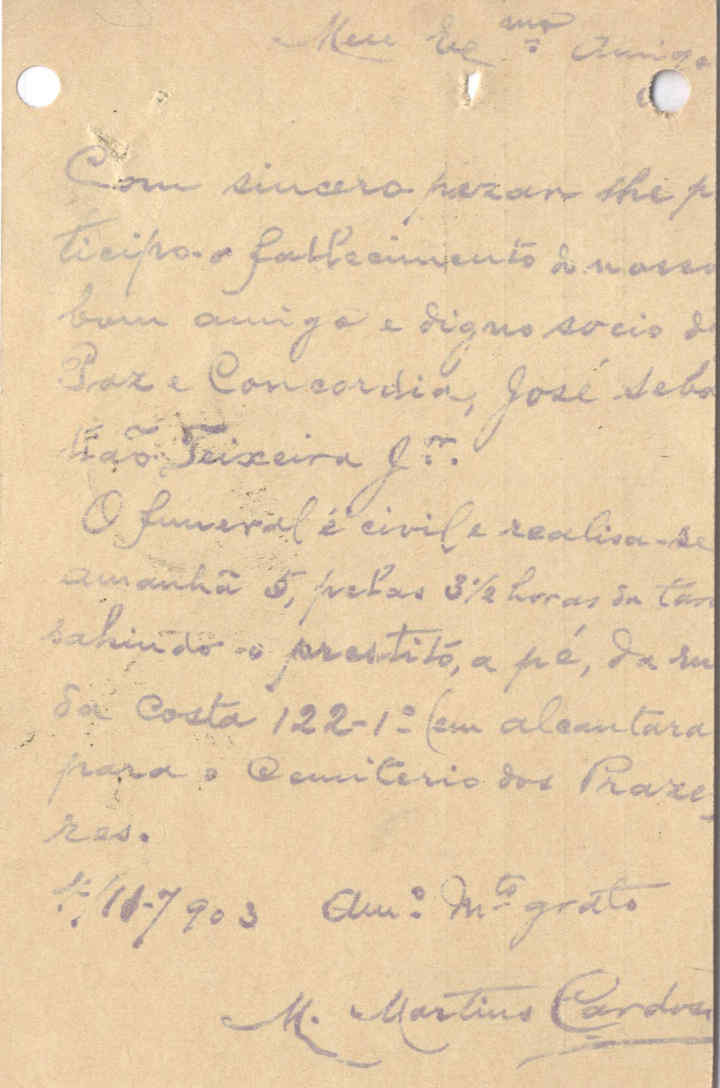 Meu Exmo Amigo
Com sincero pezar lhe p
ticipo o fallecimento do nosso
bom amigo e digno socio d
Paz e Concordia, José Seba
tião Teixeira Jor.
O funeral é civil e realisa-se
amanhã 5, pelas 3 1/2 horas da tar
sahindo o prestito, a pé, da ru
da Costa 122-1º (em alcantara
para o Cemiterio dos Praze-
res.
4/11-903 Amº Mto grato
M. Martins Cardoso